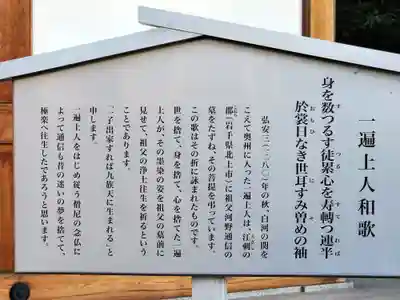 一遍上人和歌
身を数つるす徒累心を寿轉つ連半
於裳日なき世耳すみ曽めの袖
弘安三(一二八〇)年の秋、白河の関を
こえて奥州に入った一遍上人は、江刺の
郡(岩手県北上市)に祖父河野通信の
墓をたずね、その菩提を弔っています。
この歌はその折に詠まれたものです。
世を捨て、身を捨て、心を捨てた一遍
上人が、その墨染の姿を祖父の墓前に
見せて、祖父の浄土往生を祈るという
ことであります。
「一子出家すれば九族天に生まれる」と
申します。
一遍上人をはじめ従う僧尼の念仏に
よって通信も昔の迷いの夢を捨てて、
極楽へ往生したであろうと思います。